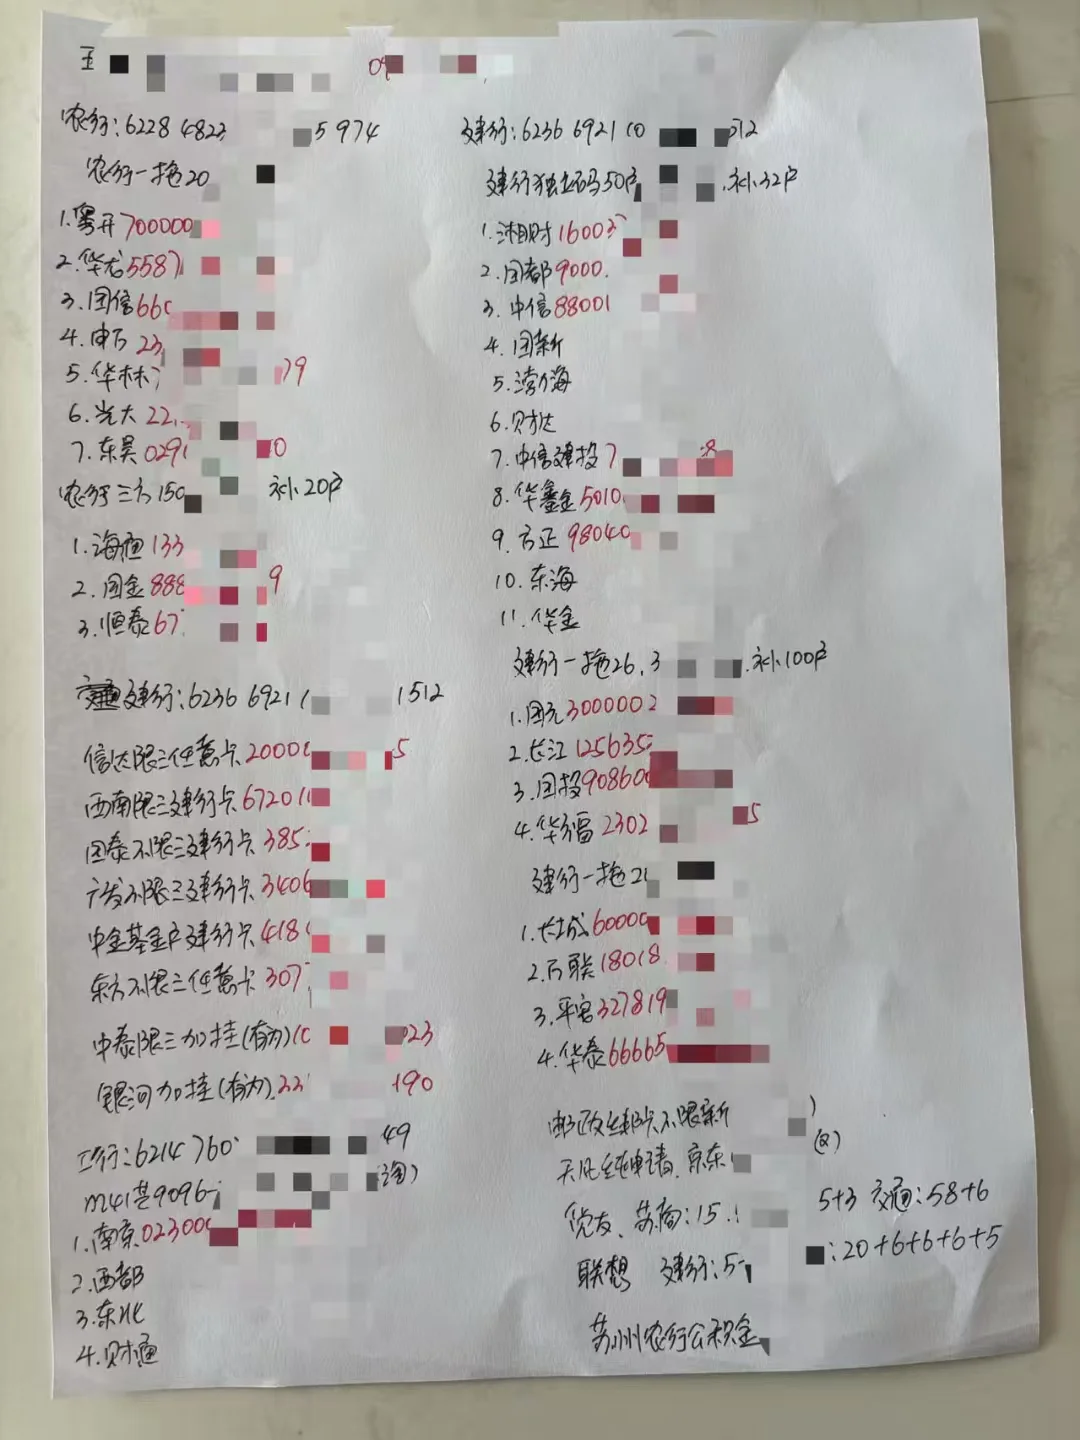 王
农行:6228 4823 5 974
农行一拖20
1.粤开700000
2.华龙5587
3.国信660
4.申万 23
5.华林 79
6.光大 22
7.东吴0291 0
农行三方150 补20户
1.海通133
2.国金888 9
3.恒泰67
建行:6236 6921 1 1512
信达限三任意卡20000 5
西南限三建行卡67201
国泰不限三建行卡385
广发不限三建行卡3406
中金基金户建行卡418
东方不限三任意卡307
中泰限三加挂(有为)10 023
银河加挂(有为)22 190
工行:6214 760 49
9096
1.南京02300
2.西部
3.东北
4.财通
建行:6236 6921 10 512
建行独立码50户 补32户
1.湘财16003
2.国都9000
3.中信88001
4.国新
5.渤海
6.财达
7.中信建投7 8
8.华鑫5010
9.方正98040
10.东海
11.华金
建行一拖26.3 补100户
1.国元3000002
2.长江125635
3.国投908600
4.华福2302 5
建行一拖21
1.长城60000
2.万联18018
3.平安327819
4.华泰66665
邮政绿卡不限新
天风纯申请.京东
悦友、苏商:15. 5+3 交通:58+6
联想 建行:5 :20+6+6+6+5
苏州农行公积金